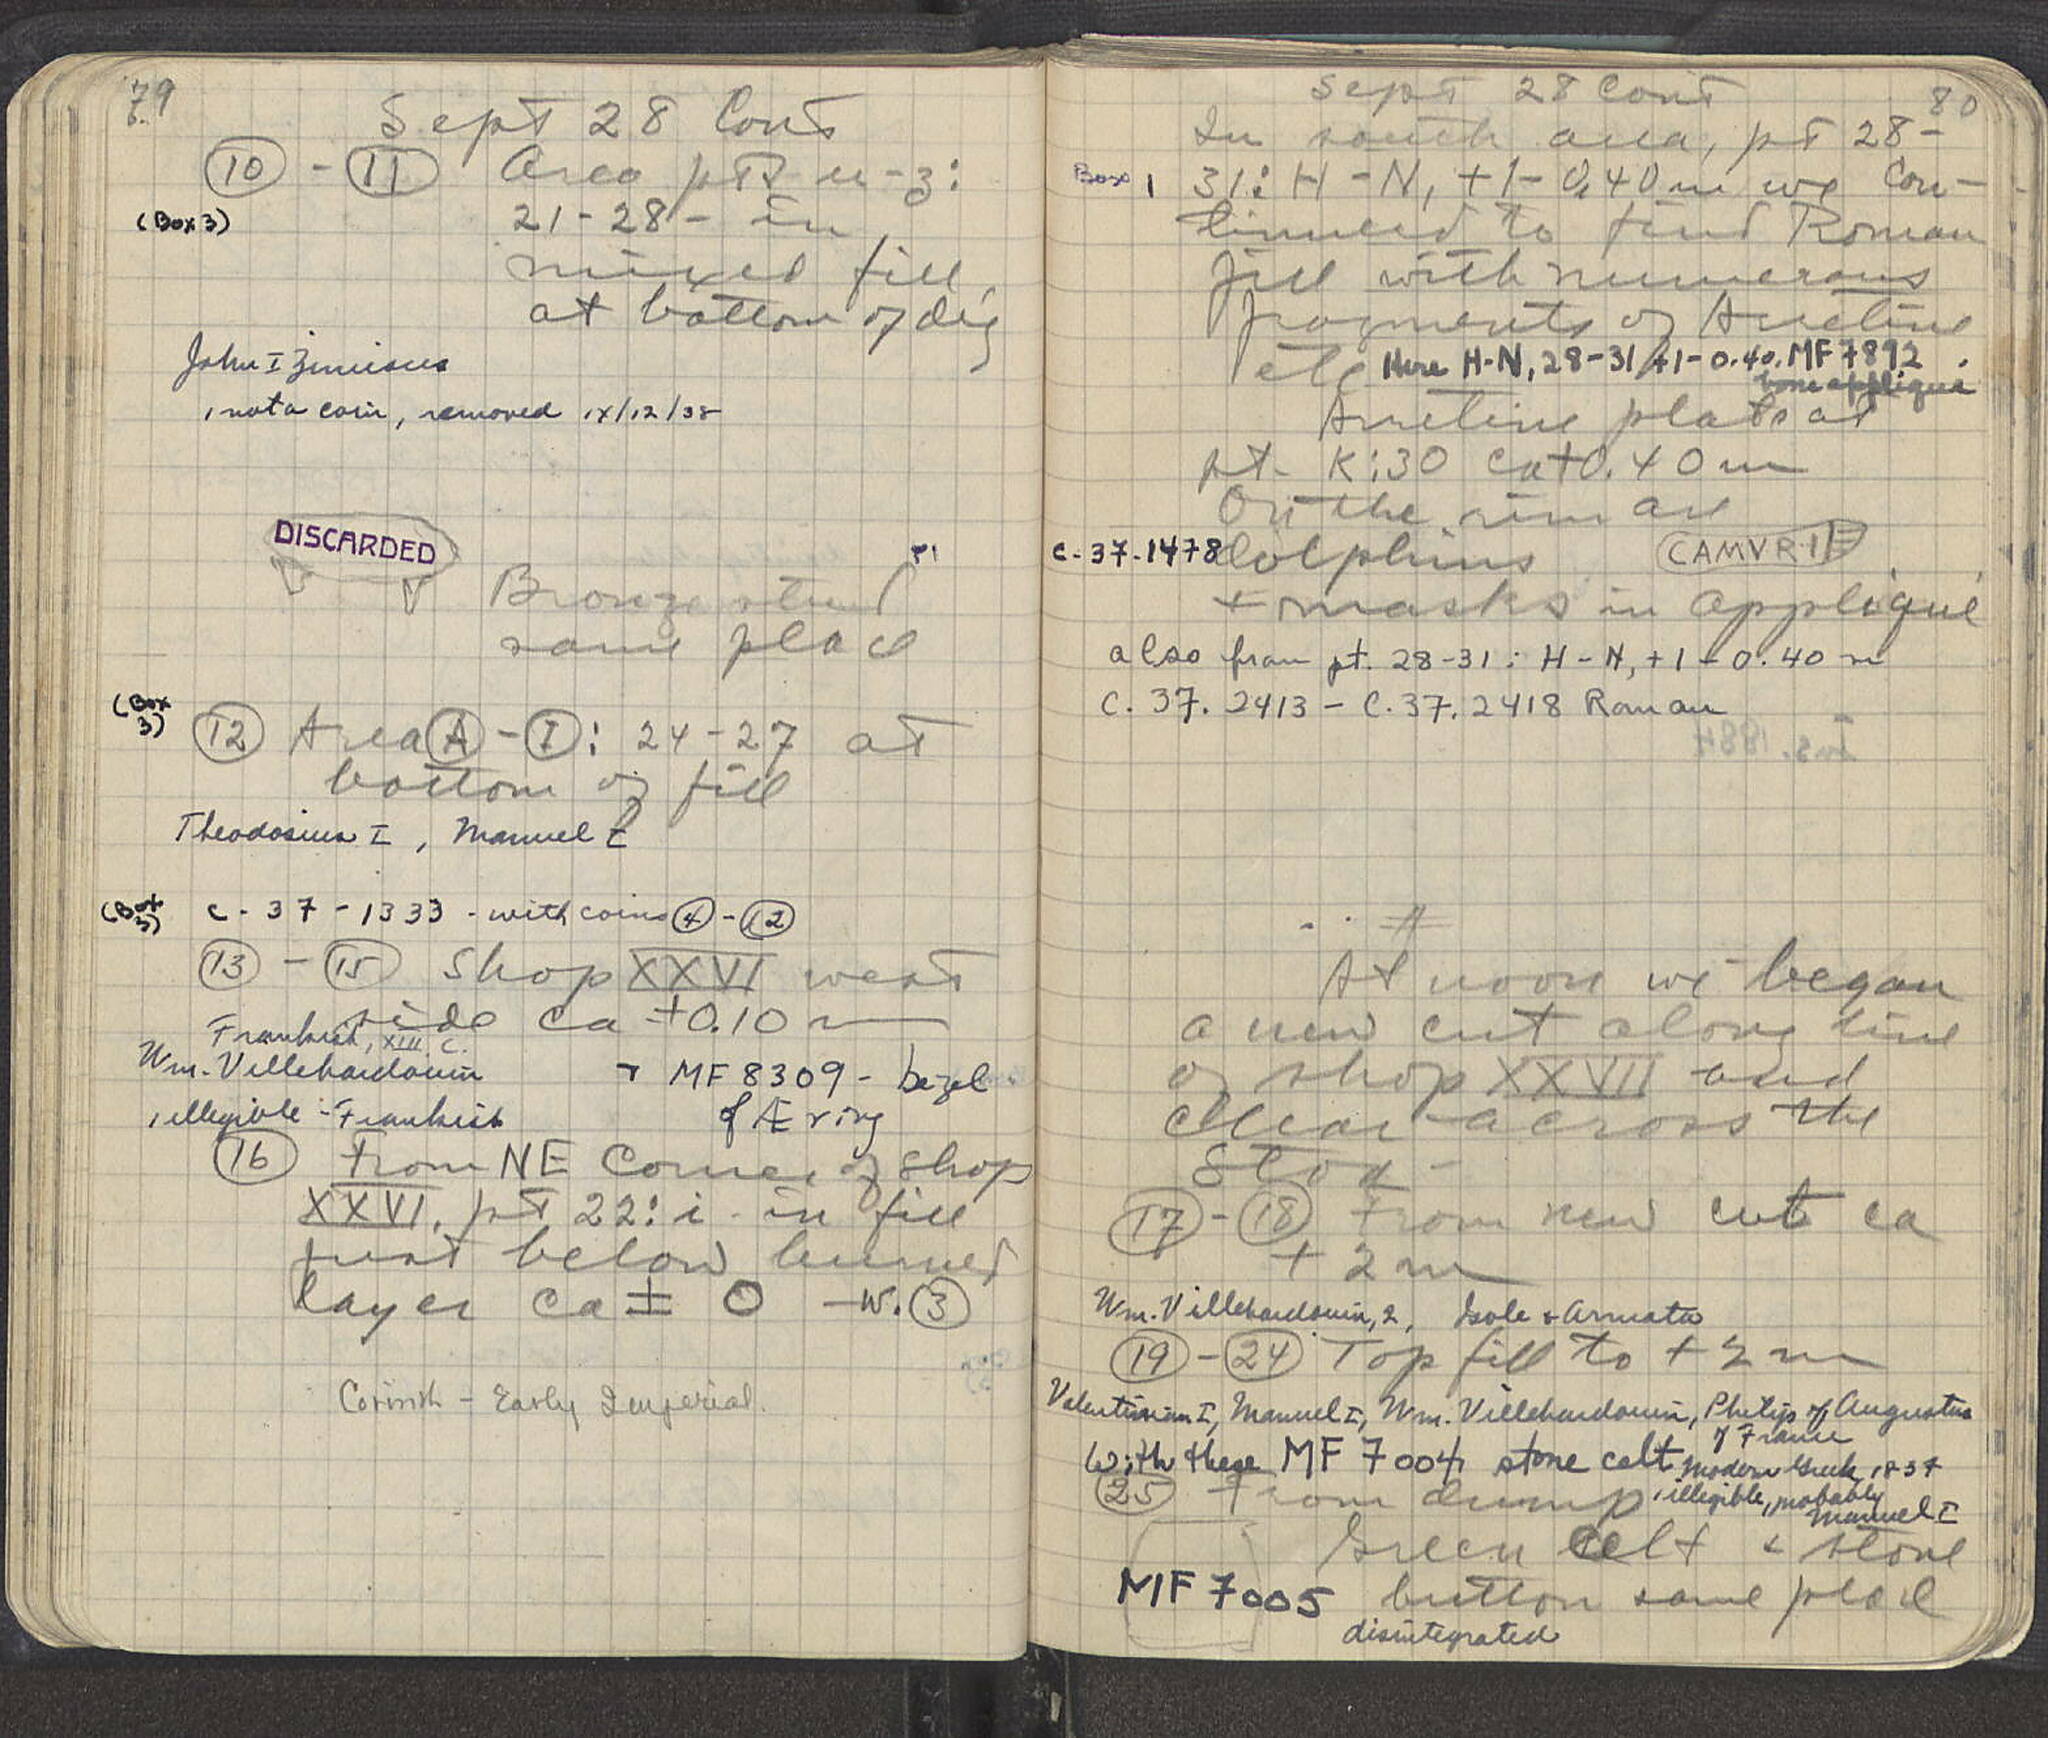 79
Sept 28 Cont
10 - 11 Area pts u-z:
(Box 3)
21-28 - in
mixed fill
at bottom of dig
John I Zimisces
1 not a coin, removed IX/12/38
DISCARDED
Bronze stud
same place
(Box 3)
12 Area A - I: 24-27 at
bottom of fill
Theodosius I, Manuel I
(Box 3) C-37-1333 - with coins 4 - 12
13 - 15 Shop XXVI west
side ca ±0.10 m
Frankish, XIII C.
Wm. Villehardouin
+ MF 8309 - bezel
1 illegible - Frankish
of Æ ring
16 From NE Corner of Shop
XXVI, pt 22:i in fill
just below burned
layer ca ± 0 - W. 3
Corinth - Early Imperial.
80
Sept 28 Cont
In south area, pt 28-
Box 1 31: H-N, +1-0.40m we con-
tinued to find Roman
fill with numerous
fragments of Arretine
etc Here H-N, 28-31, +1-0.40. MF 7892
bone appliqué
Arretine plate at
pt. K:30 ca +0.40 m
On the rim are
C-37-1478 dolphins CAMVRI
+ masks in appliqué
also from pt. 28-31: H-N, +1-0.40 m
C.37.2413 - C.37.2418 Roman
At noon we began
a new cut along line
of shop XXVII and
clear across the
Stoa -
17 - 18 From new cut ca
+ 2 m
Wm. Villehardouin, 2, Isole & Armata
19 - 24 Top fill to +2 m
Valentinian I, Manuel I, Wm. Villehardouin, Philip of Augustus
of France
With these MF 7004 stone celt
Modern Greek, 1837
25 From dump
1 illegible, probably
Manuel I
Green celt & stone
MF 7005 button same place
disintegrated